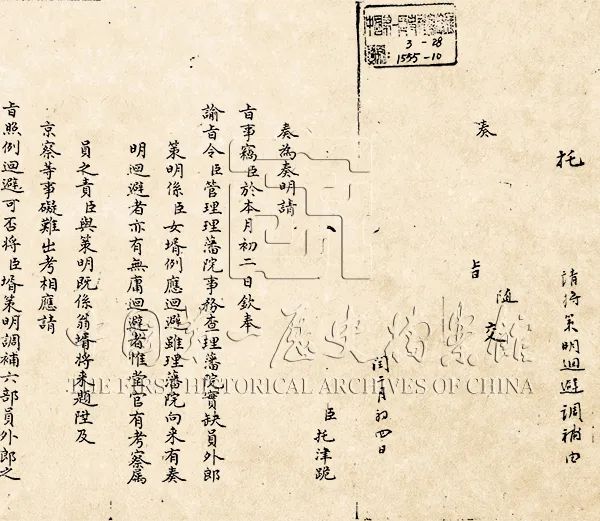 3-28
1555-10
托
請將策明迴避調補由
奏
隨
旨
交
閏二月初四日
臣
托津跪
奏為奏明請
旨事竊臣於本月初二日欽奉
諭旨令臣管理理藩院事務查理藩院實缺員外郎
策明係臣女壻例應迴避雖理藩院向來有奏
明迴避者亦有無庸迴避者惟堂官有考察屬
員之責臣與策明既係翁壻將來題陞及
京察等事礙難出考相應請
旨照例迴避可否將臣壻策明調補六部員外郎之
中國第一歷史檔案館
THE FIRST HISTORICAL ARCHIVES OF CHINA